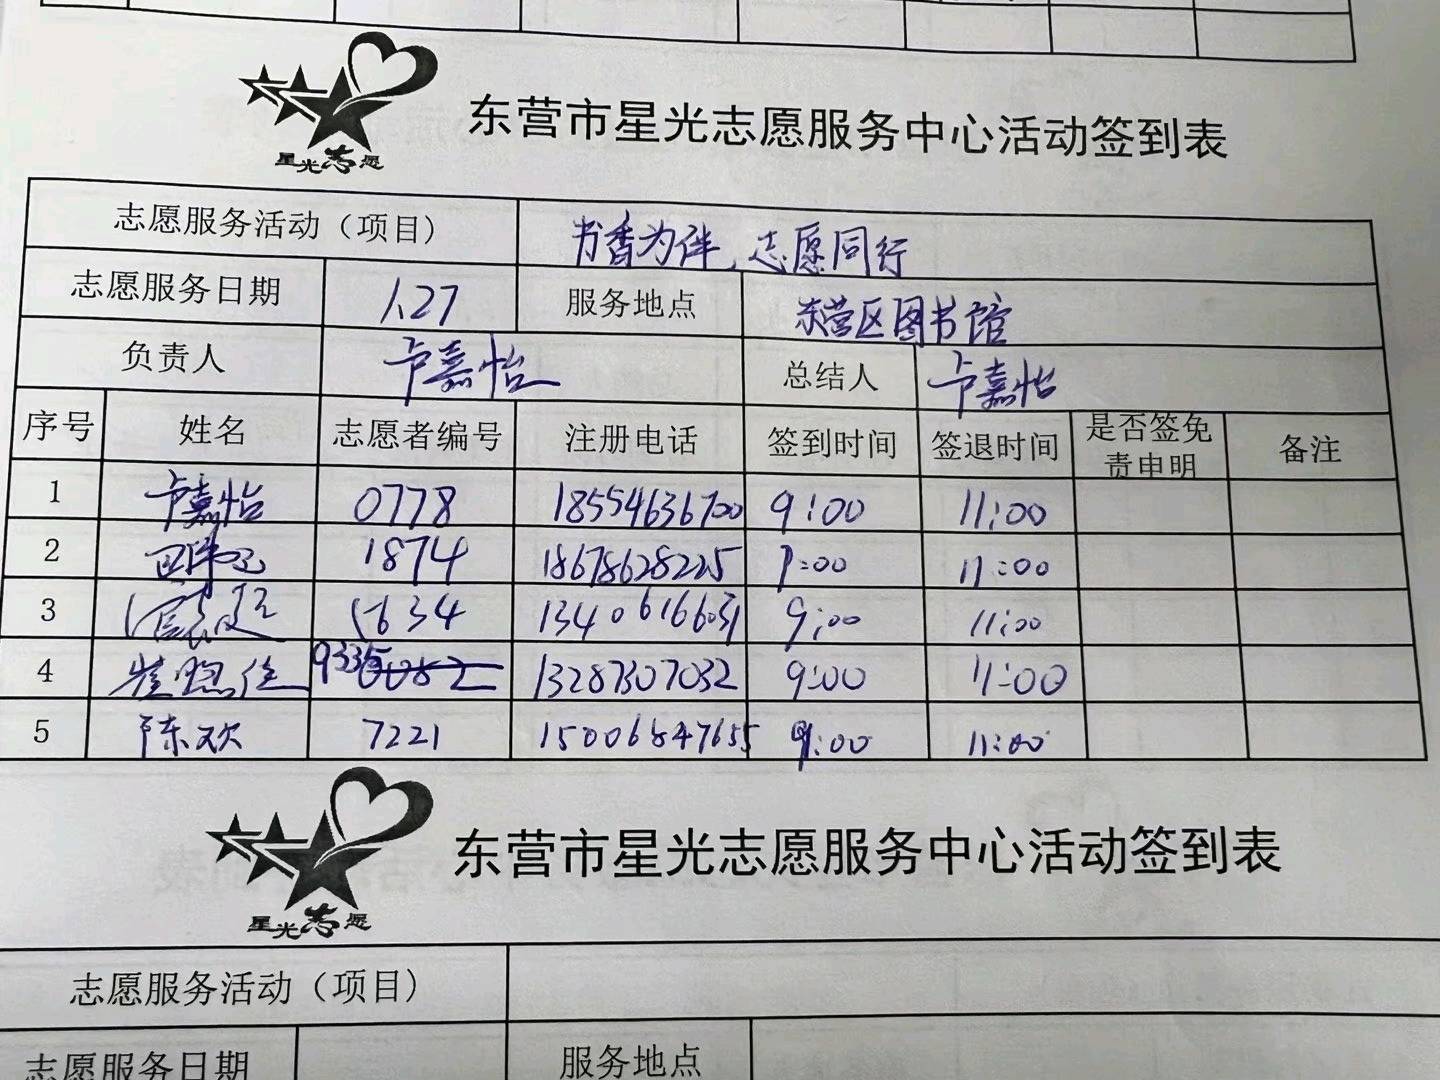 星光志愿
东营市星光志愿服务中心活动签到表
志愿服务活动（项目） 书香为伴，志愿同行
志愿服务日期 1.27 服务地点 东营区图书馆
负责人 卢嘉怡 总结人 卢嘉怡
序号 姓名 志愿者编号 注册电话 签到时间 签退时间 是否签免责申明 备注
1 卢嘉怡 0778 18554636700 9:00 11:00
2 1874 18678628225 9:00 11:00
3 1634 13406166031 9:00 11:00
4 9335 13287307032 9:00 11:00
5 陈欢 7221 15006847655 9:00 11:00
星光志愿
东营市星光志愿服务中心活动签到表
志愿服务活动（项目）
志愿服务日期 服务地点